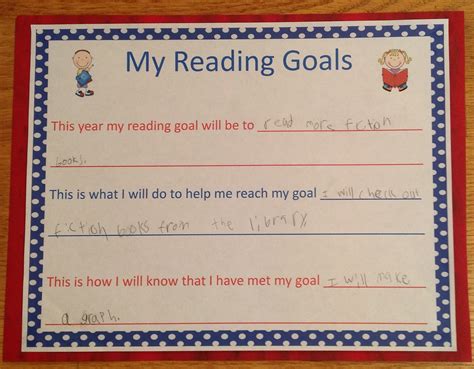 My Reading Goals
This year my reading goal will be to read more fiction
books.
This is what I will do to help me reach my goal I will check out
fiction books from the library.
This is how I will know that I have met my goal I will make
a graph.